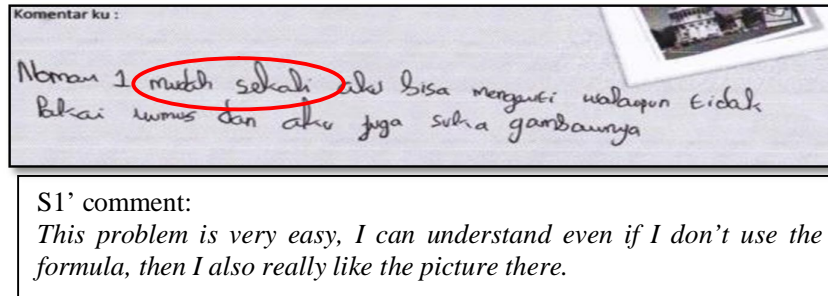 Komentar ku :
Nomor 1 mudah sekali aku bisa mengerti walaupun tidak
Pakai rumus dan aku juga suka gambarnya
S1' comment:
This problem is very easy, I can understand even if I don't use the
formula, then I also really like the picture there.